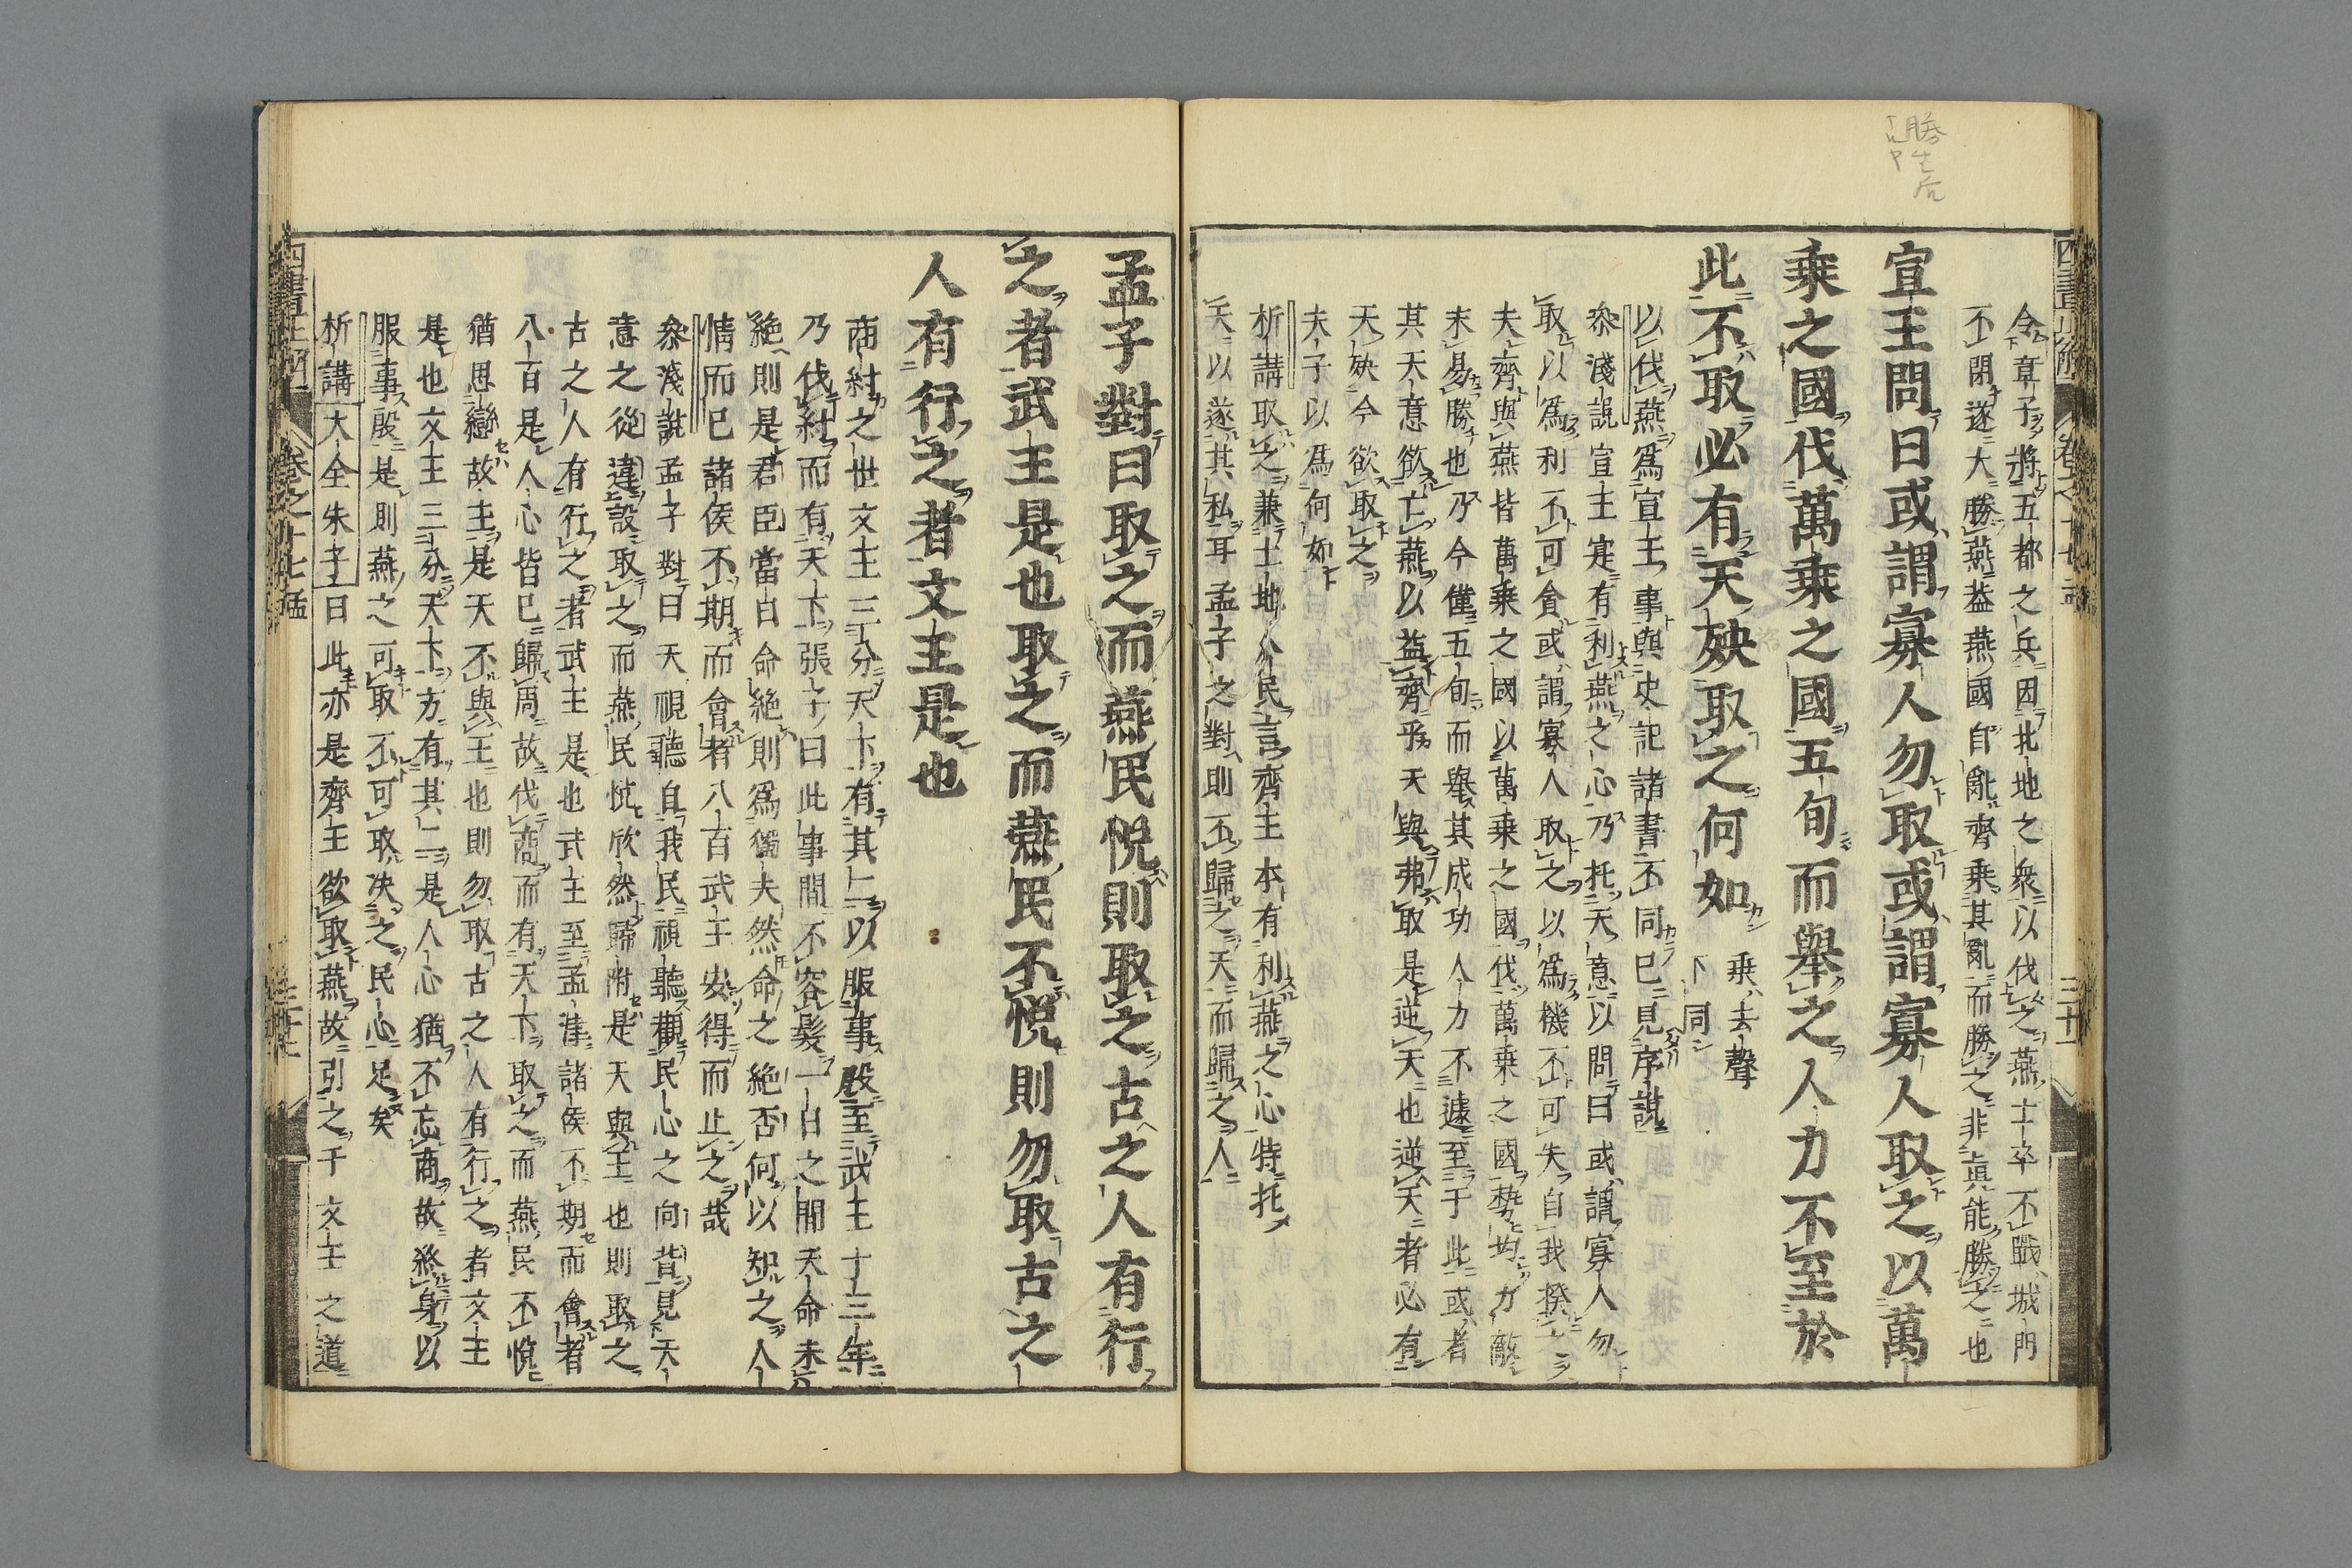 令章子將五都之兵因北地之衆以伐之燕士卒不戰城門
不閉遂大勝燕蓋燕國自亂齊乘其亂而勝之非眞能勝之也
宣王問曰或謂寡人勿取或謂寡人取之以萬
乘之國伐萬乘之國五旬而舉之人力不至於
此不取必有天殃取之何如
乘去聲
下同
以伐燕爲宣王事與史記諸書不同已見序說
叅淺說宣王寔有利燕之心乃托天意以問曰或謂寡人勿
取以爲利不可貪或謂寡人取之以爲機不可失自我揆之
夫齊與燕皆萬乘之國以萬乘之國伐萬乘之國勢均力敵
未易勝也乃今僅五旬而舉其成功人力不遽至于此或者
其天意欲亡燕以益齊乎天與弗取是逆天也逆天者必有
天殃今欲取之
夫子以爲何如
析講取之兼土地人民言齊王本有利燕之心特托
天以遂其私耳孟子之對則不歸之天而歸之人
孟子對曰取之而燕民悅則取之古之人有行
之者武王是也取之而燕民不悅則勿取古之
人有行之者文王是也
商紂之世文王三分天下有其二以服事殷至武王十三年
乃伐紂而有天下張子曰此事間不容髮一日之間天命未
絶則是君臣當日命絶則爲獨夫然命之絶否何以知之人
情而已諸侯不期而會者八百武王安得而止之哉
叅淺說孟子對曰天視聽自我民視聽觀民心之向背見天
意之從違設取之而燕民忻欣然歸附是天與王也則取之
古之人有行之者武王是也武王至孟津諸侯不期而會者
八百是人心皆已歸周故伐商而有天下取之而燕民不悅
猶思戀故主是天不與王也則勿取古之人有行之者文王
是也文王三分天下方有其二是人心猶不忘商故終身以
服事殷是則燕之可取不可取决之民心足矣
析講大全朱子曰此亦是齊王欲取燕故引之于文王之道